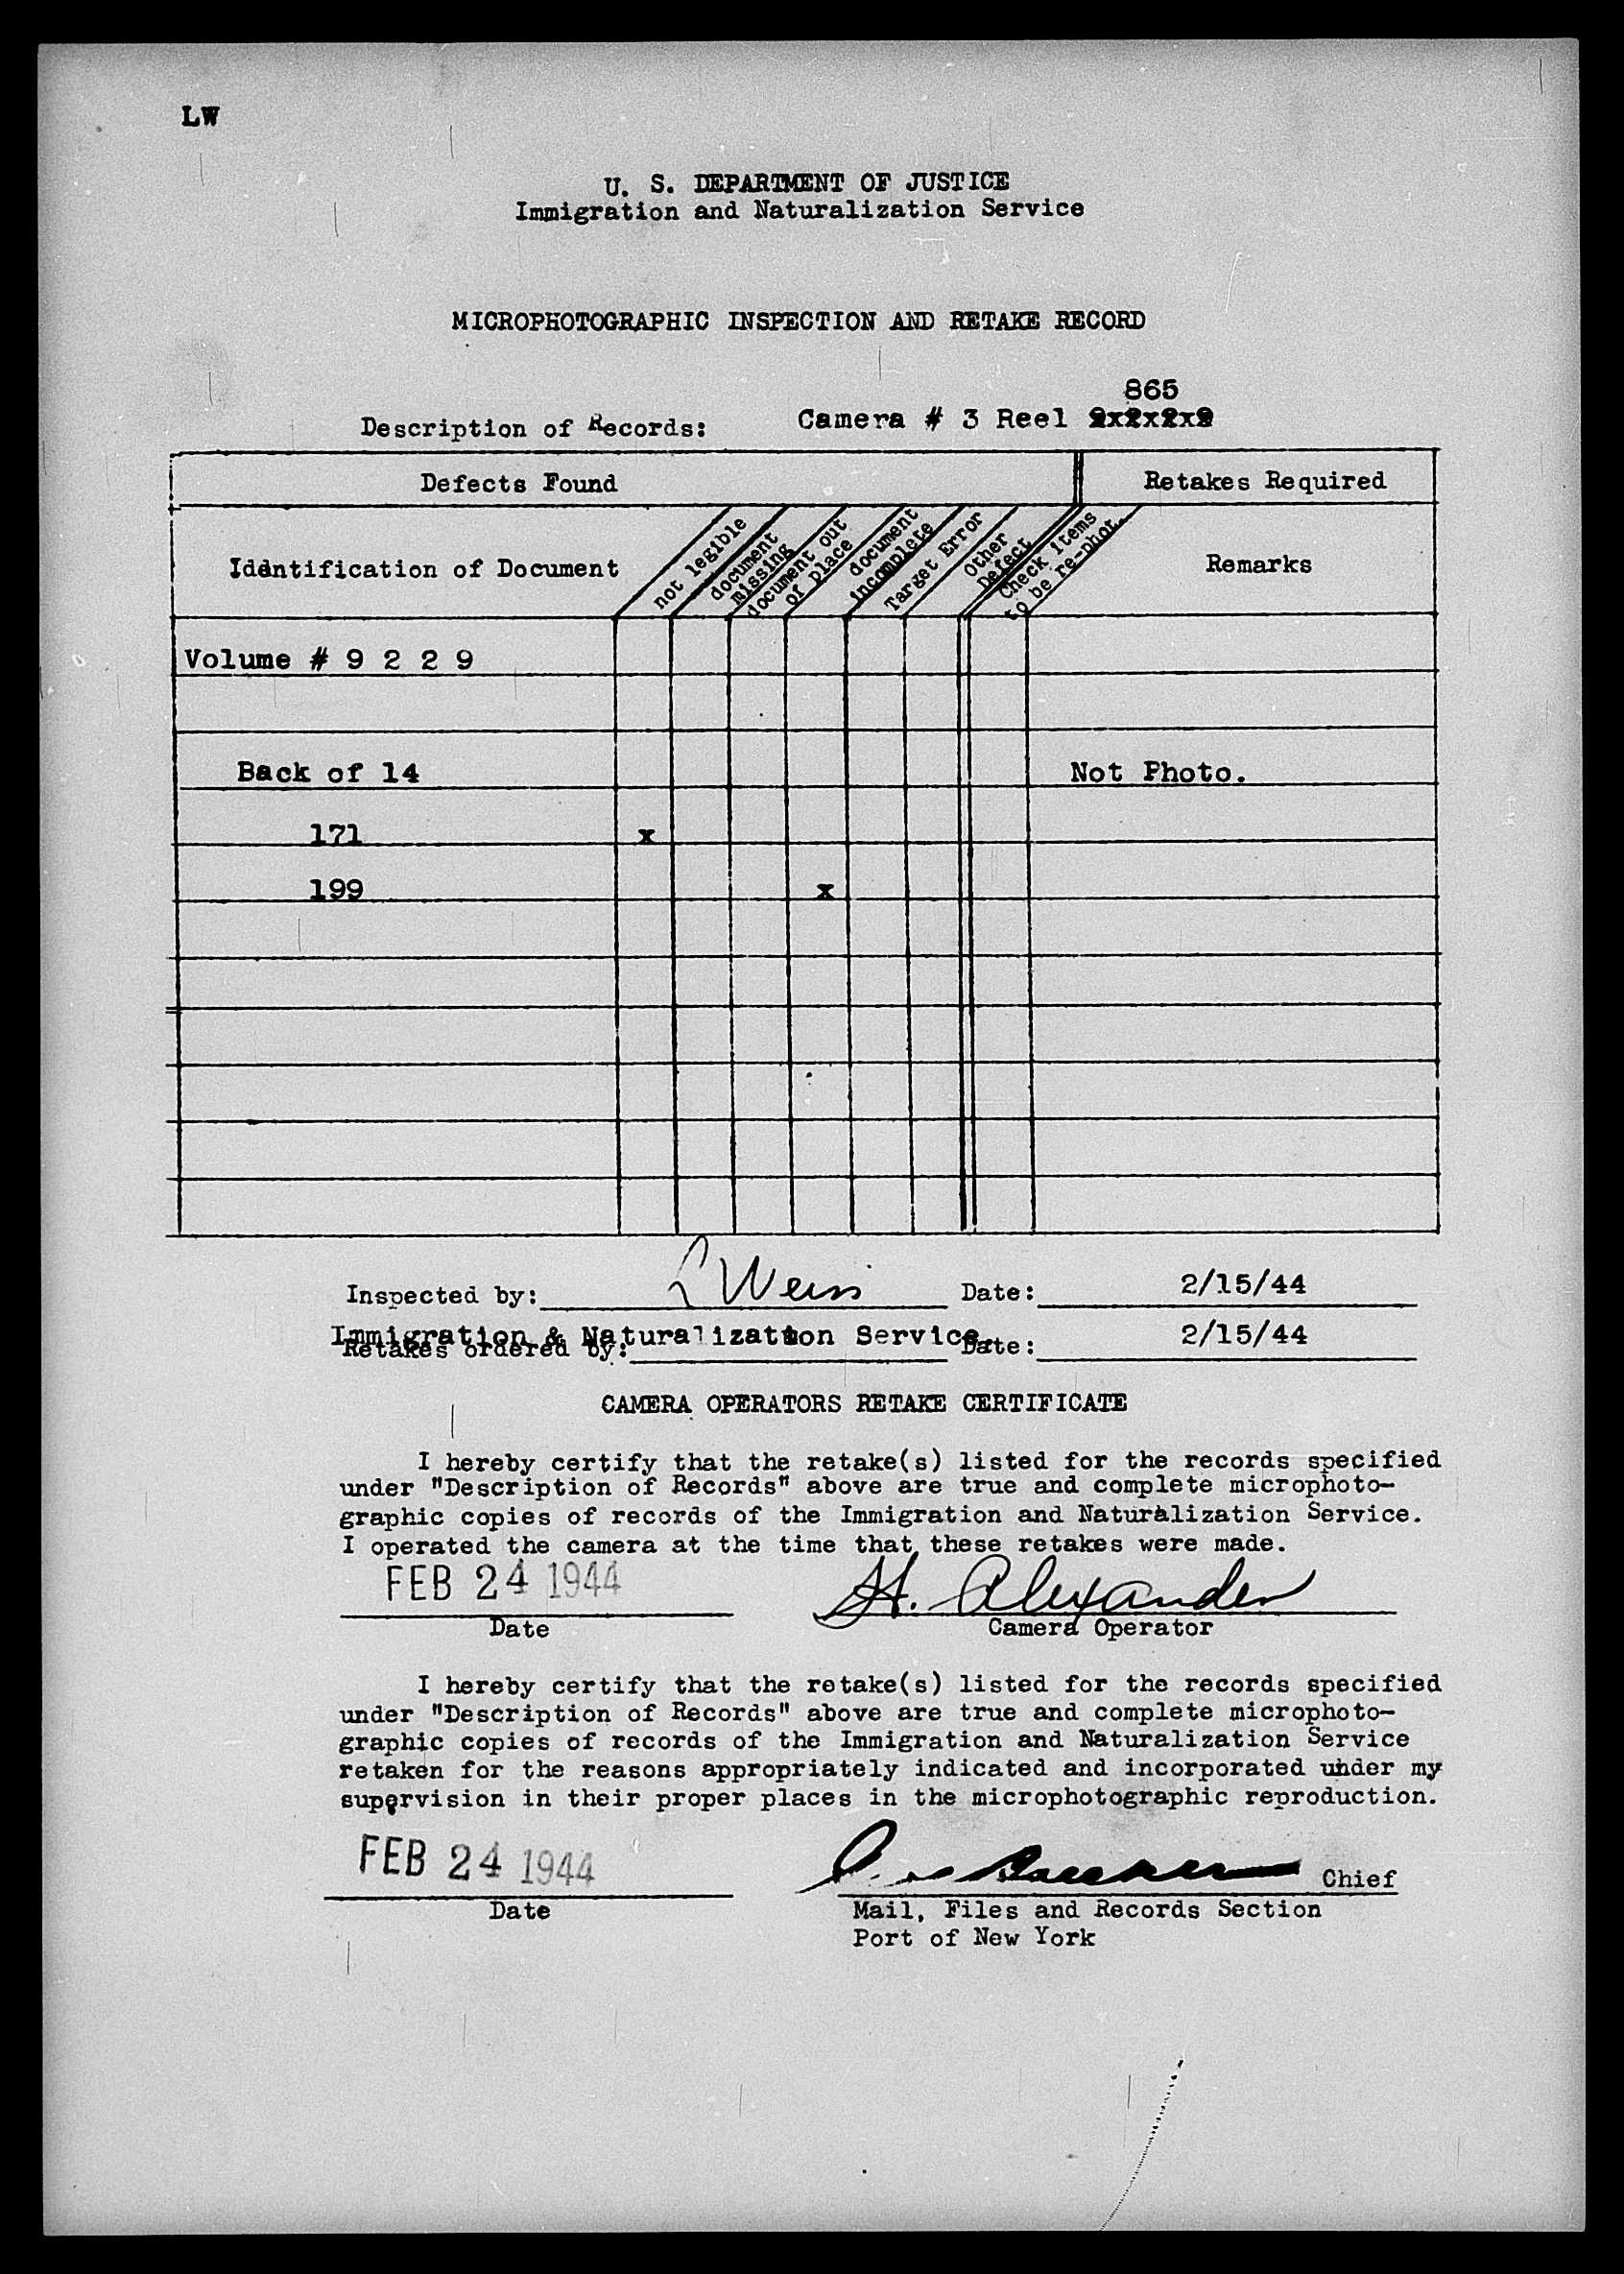 LW
U. S. DEPARTMENT OF JUSTICE
Immigration and Naturalization Service
MICROPHOTOGRAPHIC INSPECTION AND RETAKE RECORD
865
Description of Records: Camera # 3 Reel
Defects Found Retakes Required
Identification of Document
not legible
document missing
document out of place
document incomplete
Target Error
Other Defect
Check items to be re-phot.
Remarks
Volume # 9 2 2 9
Back of 14 Not Photo.
171 x
199 x
Inspected by: L Weiss Date: 2/15/44
Immigration & Naturalization Service.
Retakes ordered by: Date: 2/15/44
CAMERA OPERATORS RETAKE CERTIFICATE
I hereby certify that the retake(s) listed for the records specified
under "Description of Records" above are true and complete microphoto-
graphic copies of records of the Immigration and Naturalization Service.
I operated the camera at the time that these retakes were made.
FEB 24 1944 H. Alexander
Date Camera Operator
I hereby certify that the retake(s) listed for the records specified
under "Description of Records" above are true and complete microphoto-
graphic copies of records of the Immigration and Naturalization Service
retaken for the reasons appropriately indicated and incorporated under my
supervision in their proper places in the microphotographic reproduction.
FEB 24 1944 Chief
Date Mail, Files and Records Section
Port of New York